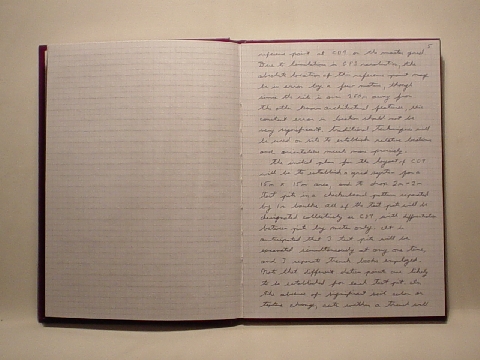 5
reference point at C89 on the master grid
Due to limitations in GPS resolution, the
absolute location of the reference point may
be in error by a few meters, though
since the site is over 350m away from
the other known architectural features, this
constant error in location should not be
very significant. Traditional techniques will
be used on site to establish relative locations
and orientations much more precisely.
The initial plan for the layout of C89
will be to establish a grid system for a
15m x 15m area and to show 2m x 2m
test pits in a checkerboard pattern separated
by 1m baulks. All of the test pits will be
designated collectively as C89, with differentiation
between pits by meters only. It is
anticipated that 3 test pits will be
excavated simultaneously at any one time,
and 3 separate trench books employed.
Note that different datum points are likely
to be established for each test pit. In
the absence of significant soil color or
texture change, units within a trench will